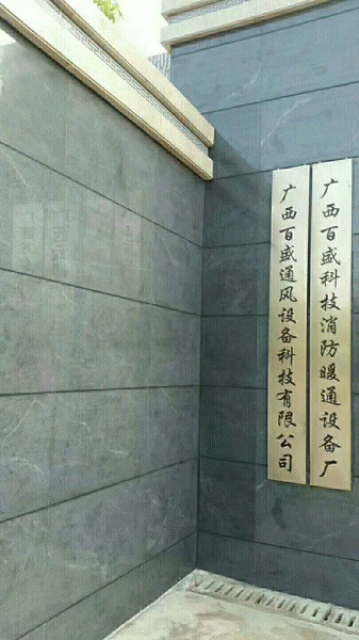 广西百盛科技消防暖通设备厂
广西百盛通风设备科技有限公司